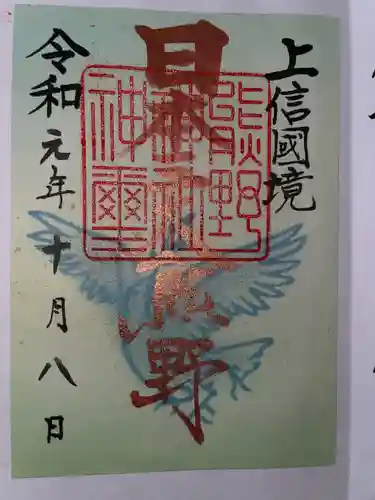 上信國境
日本三大熊野
熊野
神社
神璽
令和元年十月八日